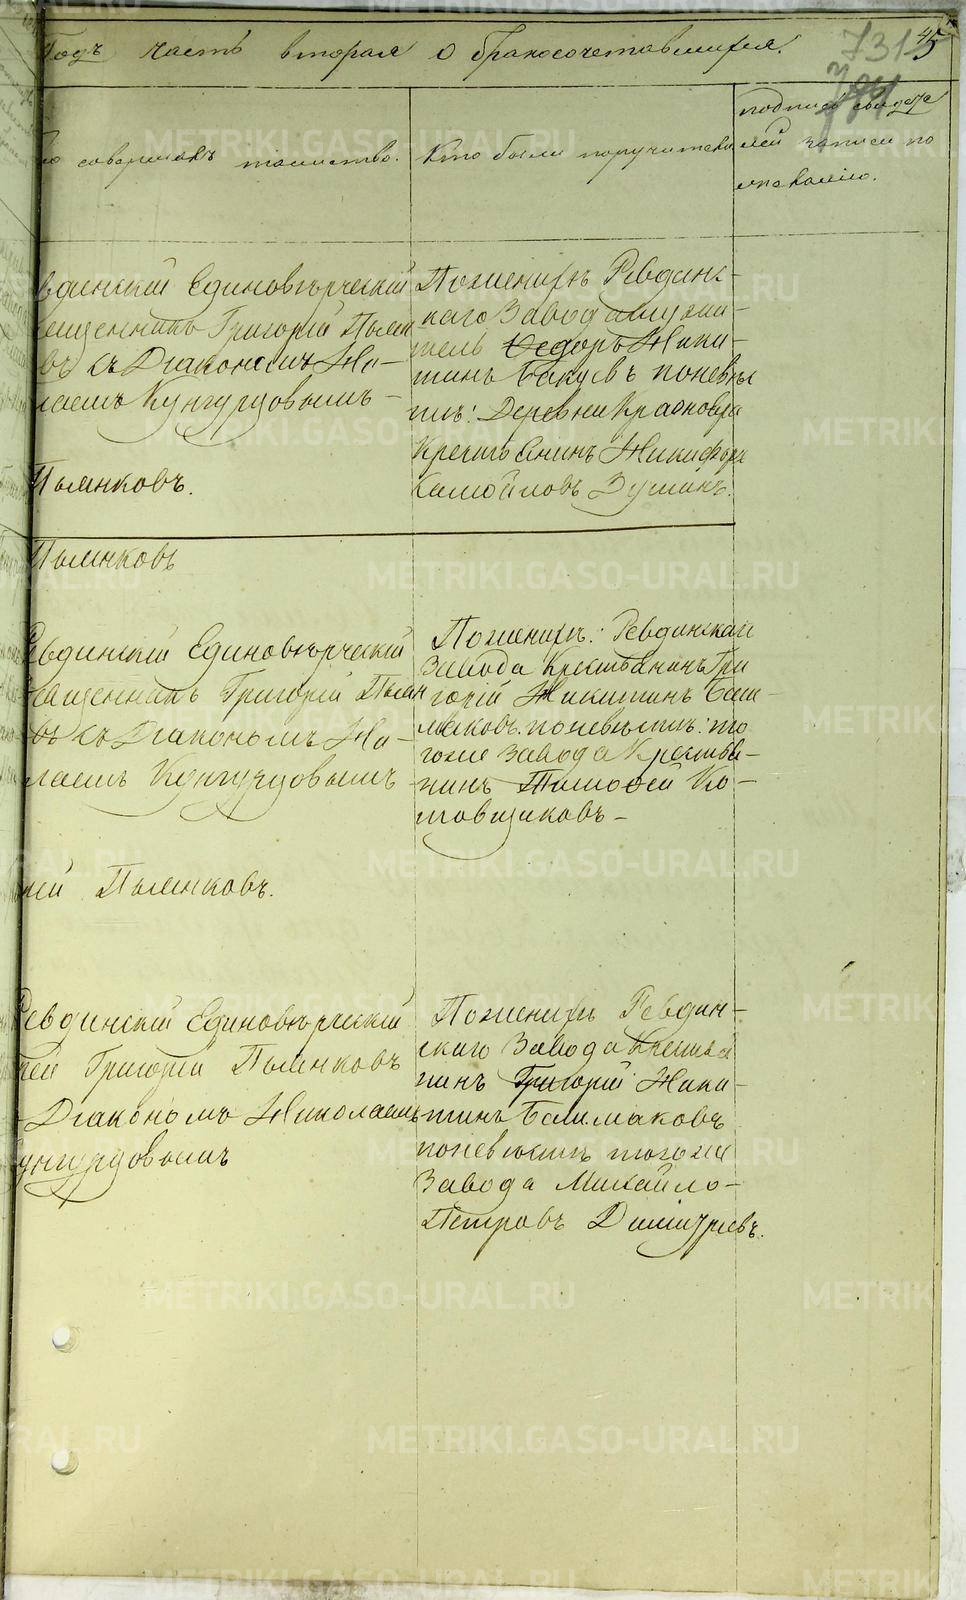 Годъ часть вторая о бракосочетавшихся.
731 45
совершалъ таинство.
Кто были поручители
подпись свидѣте
лей записи по
Ревдинскій Единовѣрческій
священникъ Григорій Пьян
въ съ Діакономъ Ни-
лаемъ Кунгурцовымъ-
Пьянковъ.
По женихѣ Ревдинс-
каго Завода
тель Ѳедоръ Ники-
тинъ поневѣс
тѣ: Деревни Краснояра
Крестьянинъ Никифоръ
Самойловъ
Пьянковъ
Ревдинскій Единовѣрческій
священникъ Григорій Пьян
въ съ Діакономъ Ни-
лаемъ Кунгурцовымъ
ій Пьянковъ.
По женихѣ: Ревдинскаго
Завода Крестьянинъ Гри
горій Никитинъ Баш-
маковъ. поневѣстѣ: то
гоже Завода Крестья-
нинъ Тимоѳей Ко-
товщиковъ-
Ревдинскій Единовѣрческій
рей Григорій Пьянковъ
Діакономъ Николаемъ
унгурцовымъ
По женихѣ Ревдин-
скаго Завода Крестья
нинъ Григорій Ники-
тинъ Башмаковъ
поневѣстѣ тогоже
Завода Михайло-
Петровъ Димитріевъ.
METRIKI.GASO-URAL.RU